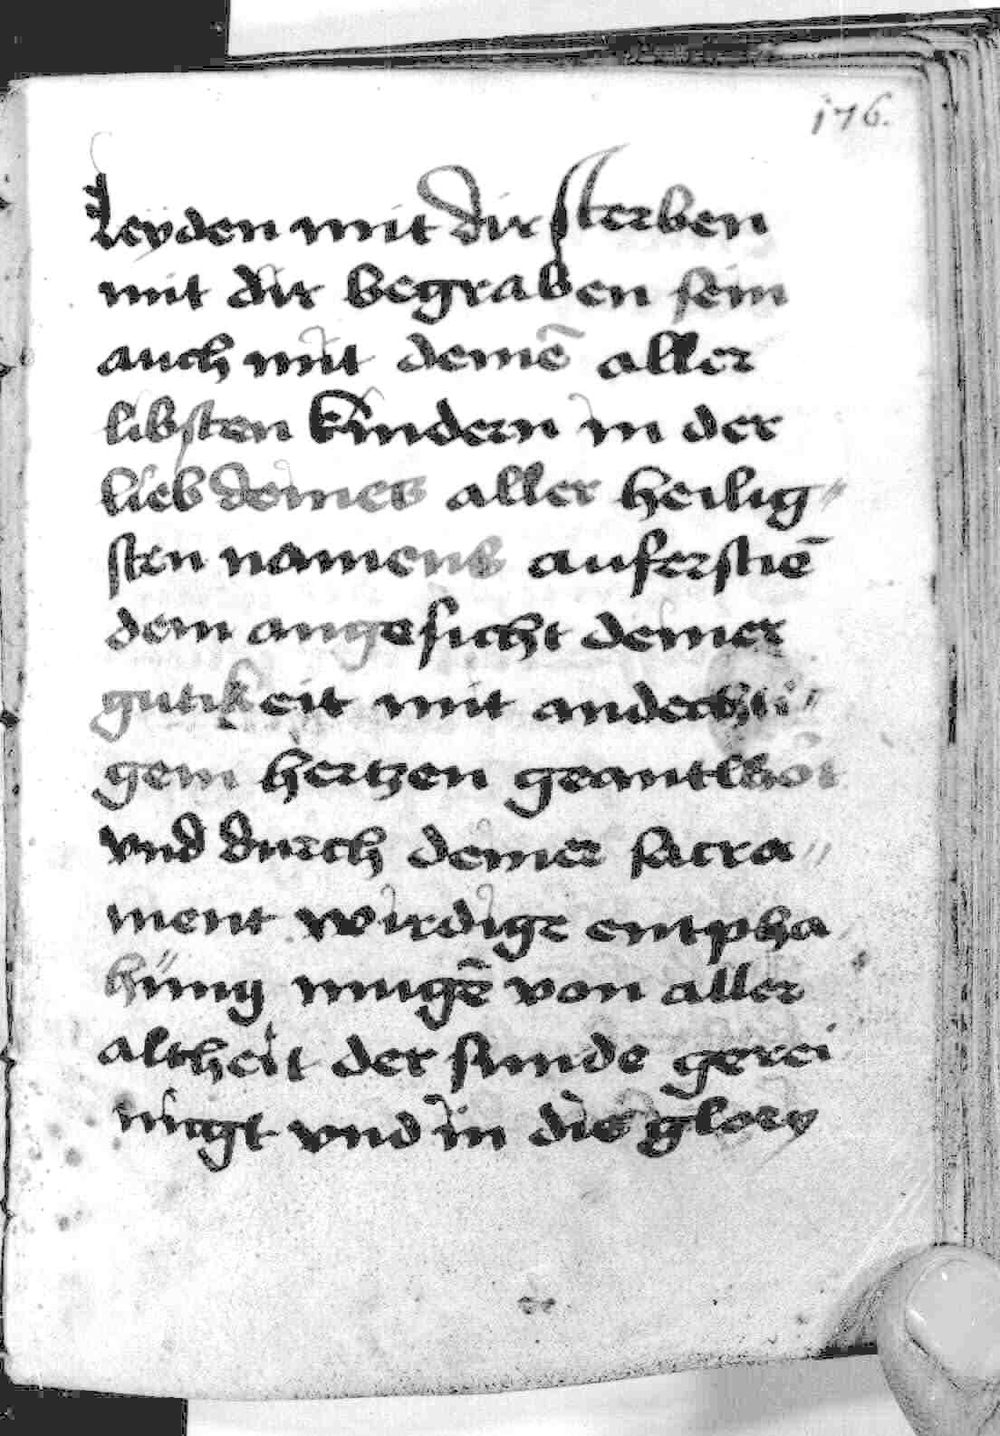 176.
leyden mit dir sterben
mit dir begraben sein
auch mit deinē aller
libsten kindern in der
lieb deines aller heilig〃
sten namens auferstiē
dem angesicht deiner
gutikeit mit andechti〃
gem hertzen geantwōt
vnd durch deiner sacra〃
ment wirdige entpha
hüng mugē von aller
altheit der sunde gerei
nigt vnd in die glory